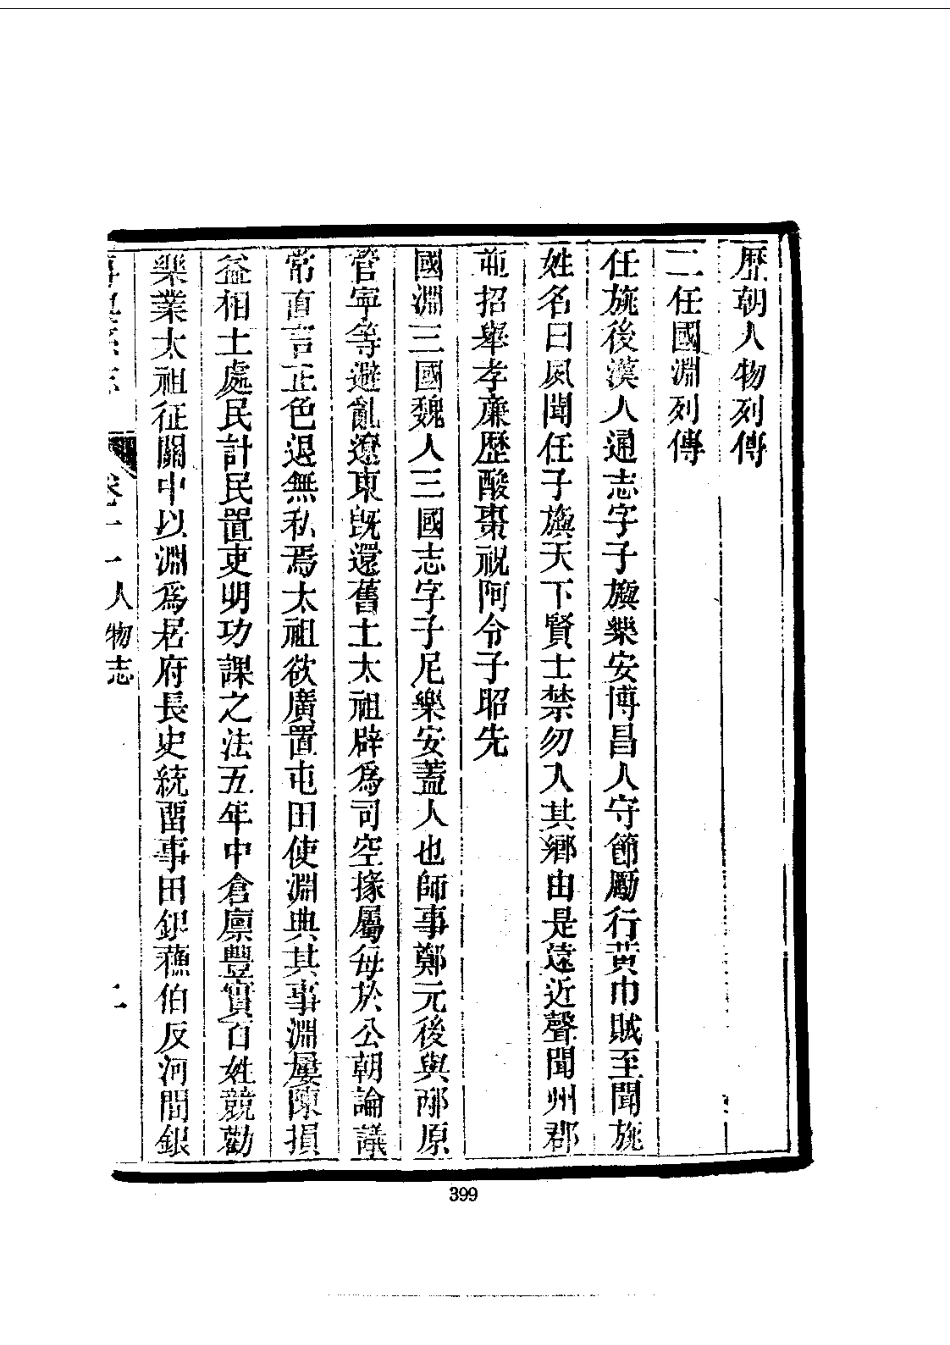 歷朝人物列傳
二任國淵列傳
任旐後漢人通志字子旟樂安博昌人守節勵行黃巾賊至聞旐
姓名曰夙聞任子旟天下賢士禁勿入其鄉由是遠近聲聞州郡
並招舉孝廉歷酸棗祝阿令子昭先
國淵三國魏人三國志字子尼樂安蓋人也師事鄭元後與邴原
管寧等避亂遼東旣還舊土太祖辟爲司空掾屬每於公朝論議
常直言正色退無私焉太祖欲廣置屯田使淵典其事淵屢陳損
益相土處民計民置吏明功課之法五年中倉廩豐實百姓競勸
樂業太祖征關中以淵爲居府長史統畱事田銀蘇伯反河間銀
人物志
399